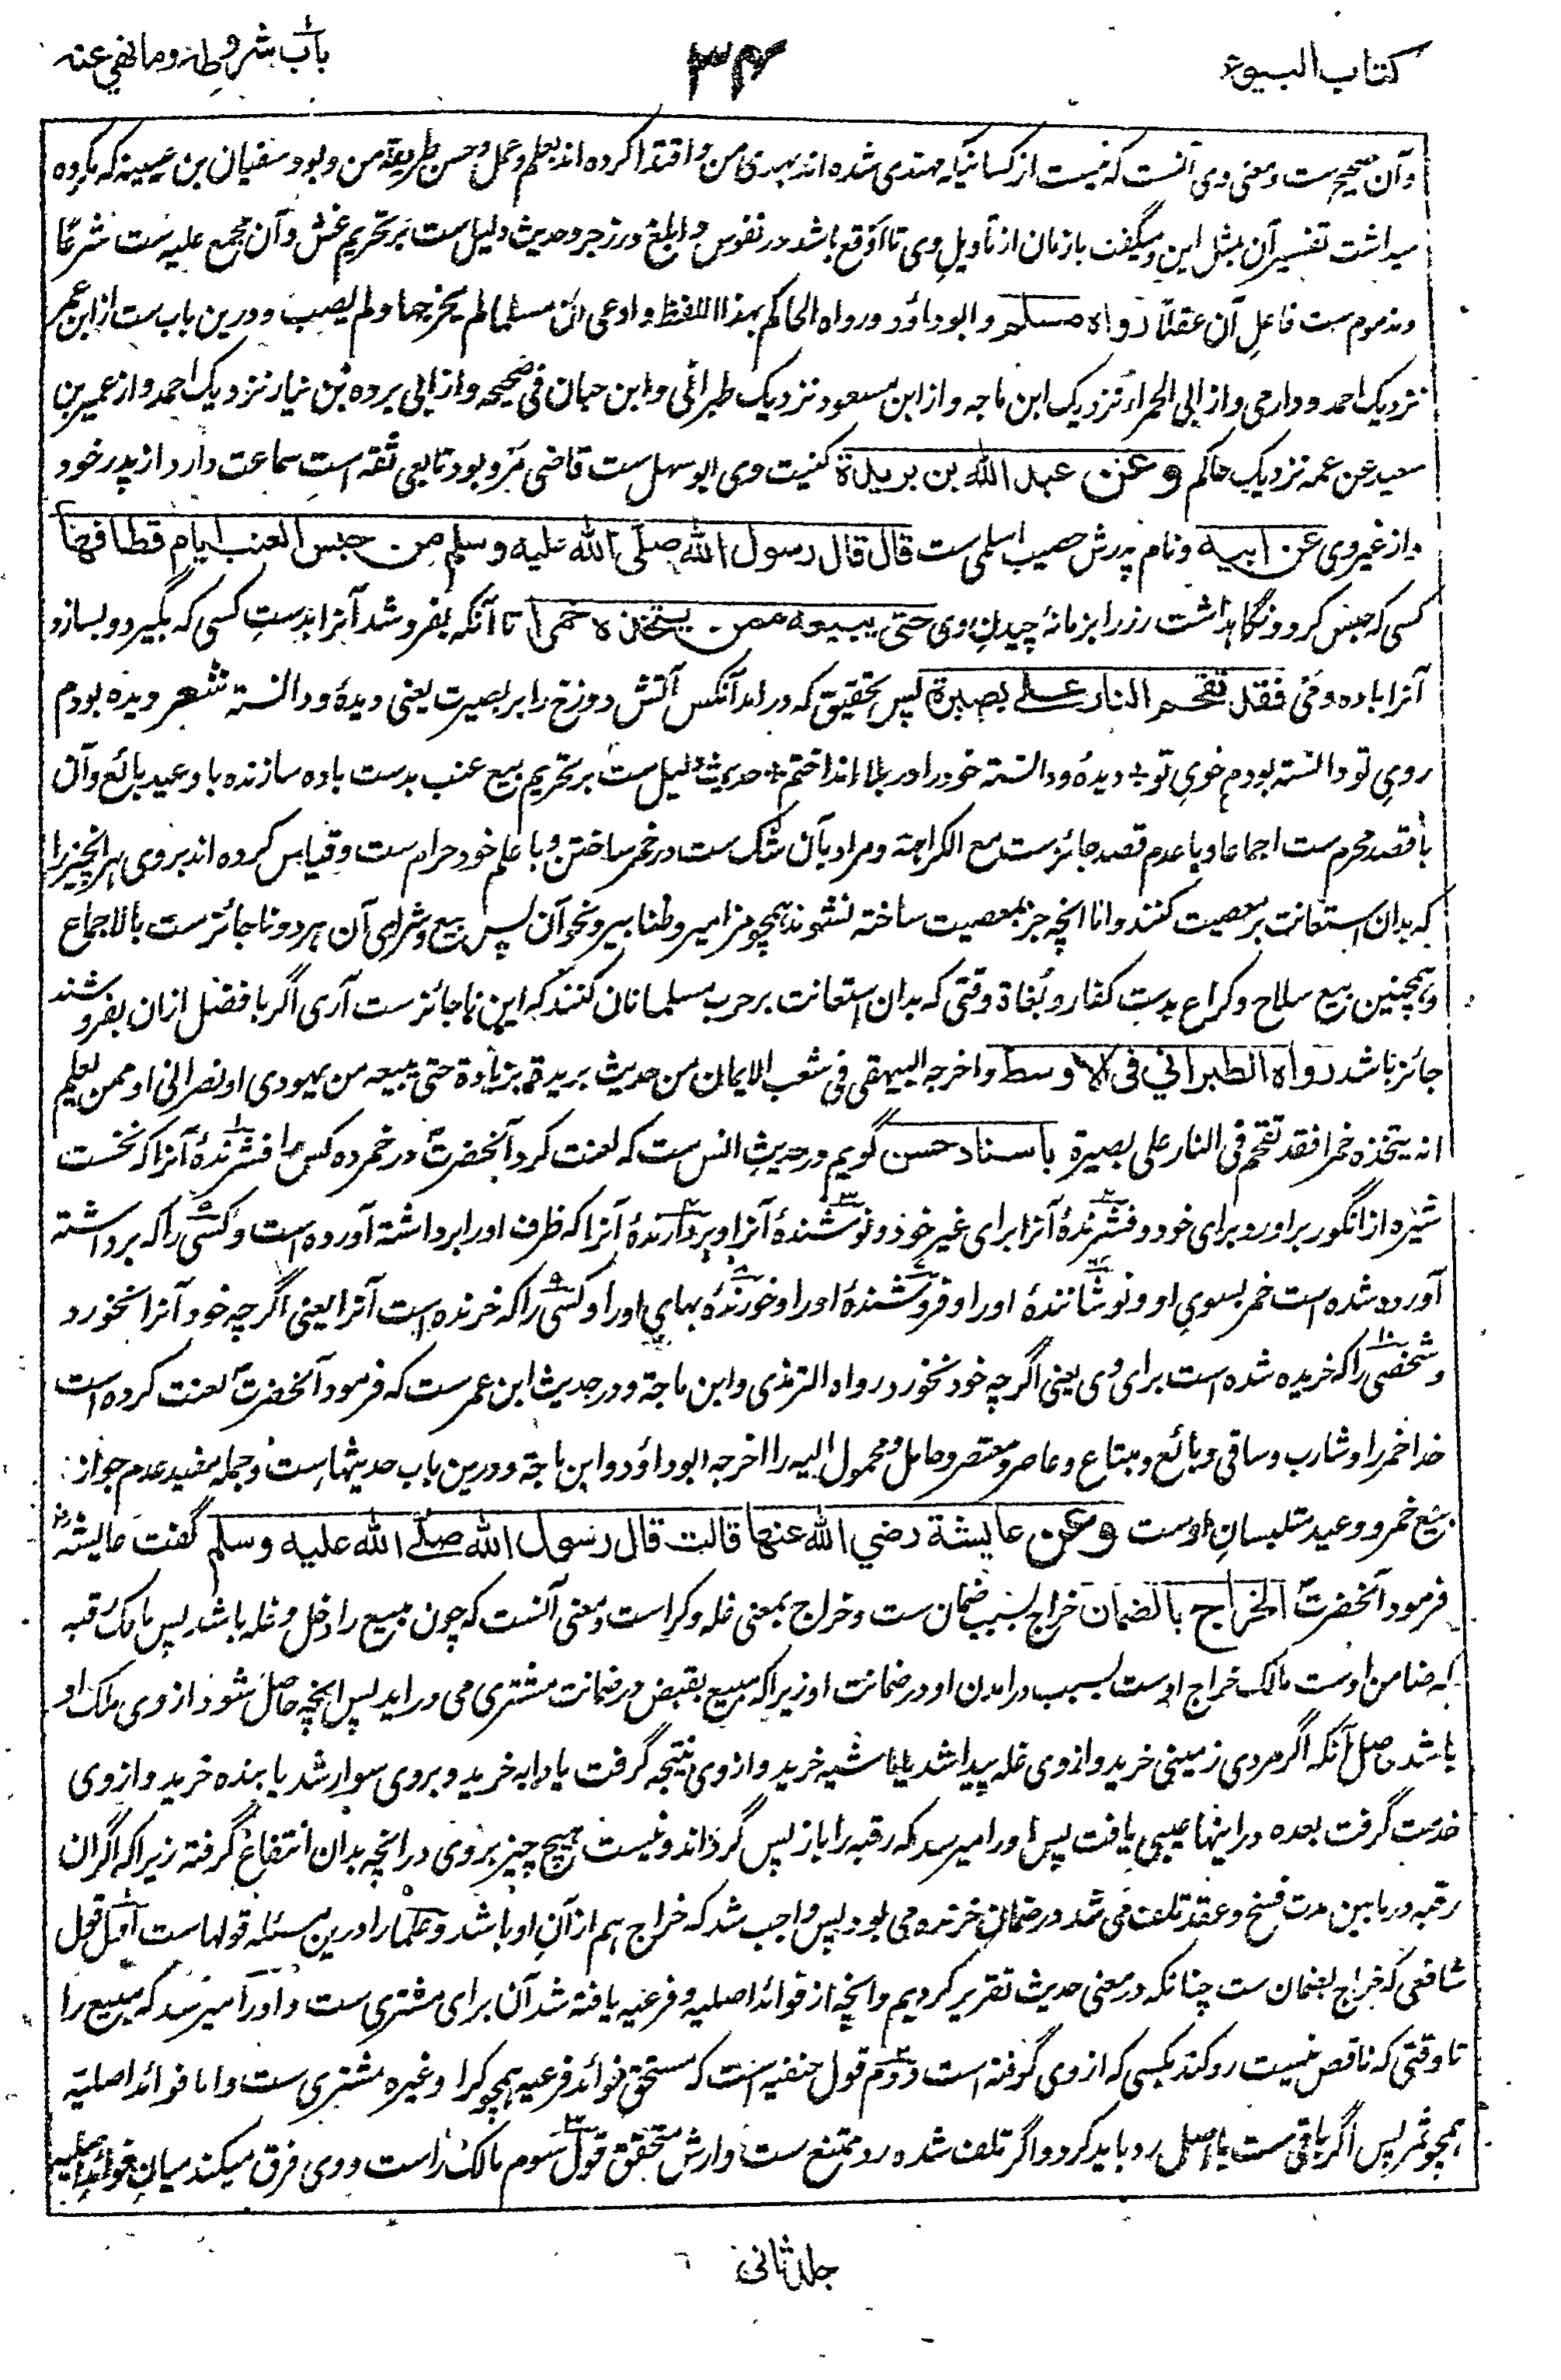 كتاب البيوع
۳۴
باب شروطه وما نهي عنه
وآن صحیح ست ومعنی وی آنست که نیست از کسانیکه مهتدی شده اند بهدی من و اقتدا کرده اند بعلم و عمل و حسن طریقهٔ من و بود سفیان بن عیینه که مکروه
میداشت تفسیر آن بمثل این و میگفت باز مان از تأویل وی تا اوقع باشد در نفوس و ابلغ در زجر و حدیث دلیل ست بر تحریم غش و آن مجمع علیه ست شرعا
و مذموم ست فاعل آن عقلاً رواه مسلم و ابو داؤد و رواه الحاكم بهذا اللفظ و ادعی ان مسلما لم یخرجها و لم یصب و درین باب ست از ابن عمر
نزدیک احمد و دارمی و از ابی الحمراء نزدیک ابن ماجه و از ابن مسعود نزدیک طبرانی و ابن حبان فی صحیحه و از ابی برده بن نیار نزدیک احمد و از عمیر بن
سعید عن عمه نزدیک حاکم وعن عبد الله بن بريدة کنیت وی ابو سهل ست قاضی مرو بود تابعی ثقه است سماعت دارد از پدر خود
و از غیر وی عن ابيه و نام پدرش حصیب اسلمی ست قال قال رسول الله صلى الله عليه وسلم من حبس العنب ايام قطافها
کسی که حبس کرد و نگاهداشت رز را بزمانهٔ چیدن وی حتى يبيعه ممن يتخذه خمرا تا آنکه بفروشد آنرا بدست کسی که بگیرد و بسازد
آنرا باده و می فقد تقحم النار على بصيرة پس بتحقیق که درامد آنکس آتش دوزخ را بر بصیرت یعنی دیده و دانسته شعر دیده بودم
روی تو دانسته بودم خوی تو ÷ دیده و دانسته خود را در بلا انداختم ÷ حدیث دلیل ست بر تحریم بیع عنب بدست باده سازنده با وعید بائع و آن
با قصد محرم ست اجماعا و با عدم قصد جائز ست مع الکراهة و مراد بآن شک ست در خمر ساختن و با علم خود حرام ست و قیاس کرده اند بروی هر آنچیز را
که بدان استعانت بر معصیت کنند و اما آنچه جز بمعصیت ساخته نشوند همچو مزامیر و طنابیر و نحو آن پس بیع و شرای آن هر دو ناجائز ست بالاجماع
و همچنین بیع سلاح و کراع بدست کفار و بغاة وقتی که بدان استعانت بر حرب مسلمانان کنند که این ناجائز ست آری اگر بافضل ازان بفروشند
جائز باشد رواه الطبراني في الاوسط و اخرجه البیهقی فی شعب الایمان من حدیث بریدة بزیادة حتی یبیعه من یهودی او نصرانی او ممن یعلم
انه یتخذه خمرا فقد تقحم فی النار علی بصیرة باسناد حسن گویم در حدیث انس ست که لعنت کرد آنحضرت در خمر ده کس را فشرندهٔ آنرا که نخست
شیره از انگور براورد برای خود و فشرندهٔ آنرا برای غیر خود و نوشندهٔ آنرا و بردارندهٔ آنرا که ظرف او را برداشته آورده است و کسی را که برداشته
آورده شده است خمر بسوی او و نوشانندهٔ او را و فروشندهٔ او را و خورندهٔ بهای او را و کسی را که خرنده است آنرا یعنی اگرچه خود آنرا نخورد
و شخصی را که خریده شده است برای وی یعنی اگرچه خود نخورد رواه الترمذی و ابن ماجة و در حدیث ابن عمر ست که فرمود آنحضرت لعنت کرده است
خدا خمر را و شارب و ساقی و بائع و مبتاع و عاصر و معتصر و حامل و محمول الیه را اخرجه ابو داؤد و ابن ماجة و درین باب حدیثهاست و جمله مفید عدم جواز
بیع خمر و وعید متلبسان اوست وعن عايشة رضي الله عنها قالت قال رسول الله صلى الله عليه وسلم گفت عایشه رض
فرمود آنحضرت الخراج بالضمان خراج بسبب ضمان ست و خراج بمعنی غله و کراست و معنی آنست که چون مبیع را دخل و غله باشد پس مالک رقبه
که ضامن اوست مالک خراج اوست بسبب درامدن او در ضمانت او زیرا که مبیع بقبض در ضمانت مشتری می دراید پس آنچه حاصل شود از وی ملک او
باشد حاصل آنکه اگر مردی زمینی خرید و از وی غله پیدا شد یا ماشیه خرید و از وی نتیجه گرفت یا دابه خرید و بروی سوار شد یا بنده خرید و از وی
خدمت گرفت بعده دراینها عیبی یافت پس او را میرسد که رقبه را باز پس گرداند و نیست هیچ چیز بروی در آنچه بدان انتفاع گرفته زیرا که اگر ان
رقبه در مابین مدت فسخ و عقد تلف می شد در ضمان خرنده می بود پس واجب شد که خراج هم از آن او باشد و علما را درین مسئله قولهاست اول قول
شافعی که خراج بضمان ست چنانکه در معنی حدیث تقریر کردیم و آنچه از فوائد اصلیه و فرعیه یافته شد آن برای مشتری ست و او را میرسد که مبیع را
تا وقتی که ناقص نیست رد کند بکسی که از وی گرفته است دوم قول حنفیه است که مستحق فوائد فرعیه همچو کرا و غیره مشتری ست و اما فوائد اصلیه
همچو ثمر پس اگر باقی ست با اصل رد باید کرد و اگر تلف شده رد ممتنع ست و ارش متحقق قول سوم مالک راست و وی فرق میکند میان فوائد اصلیه
جلد ثانی